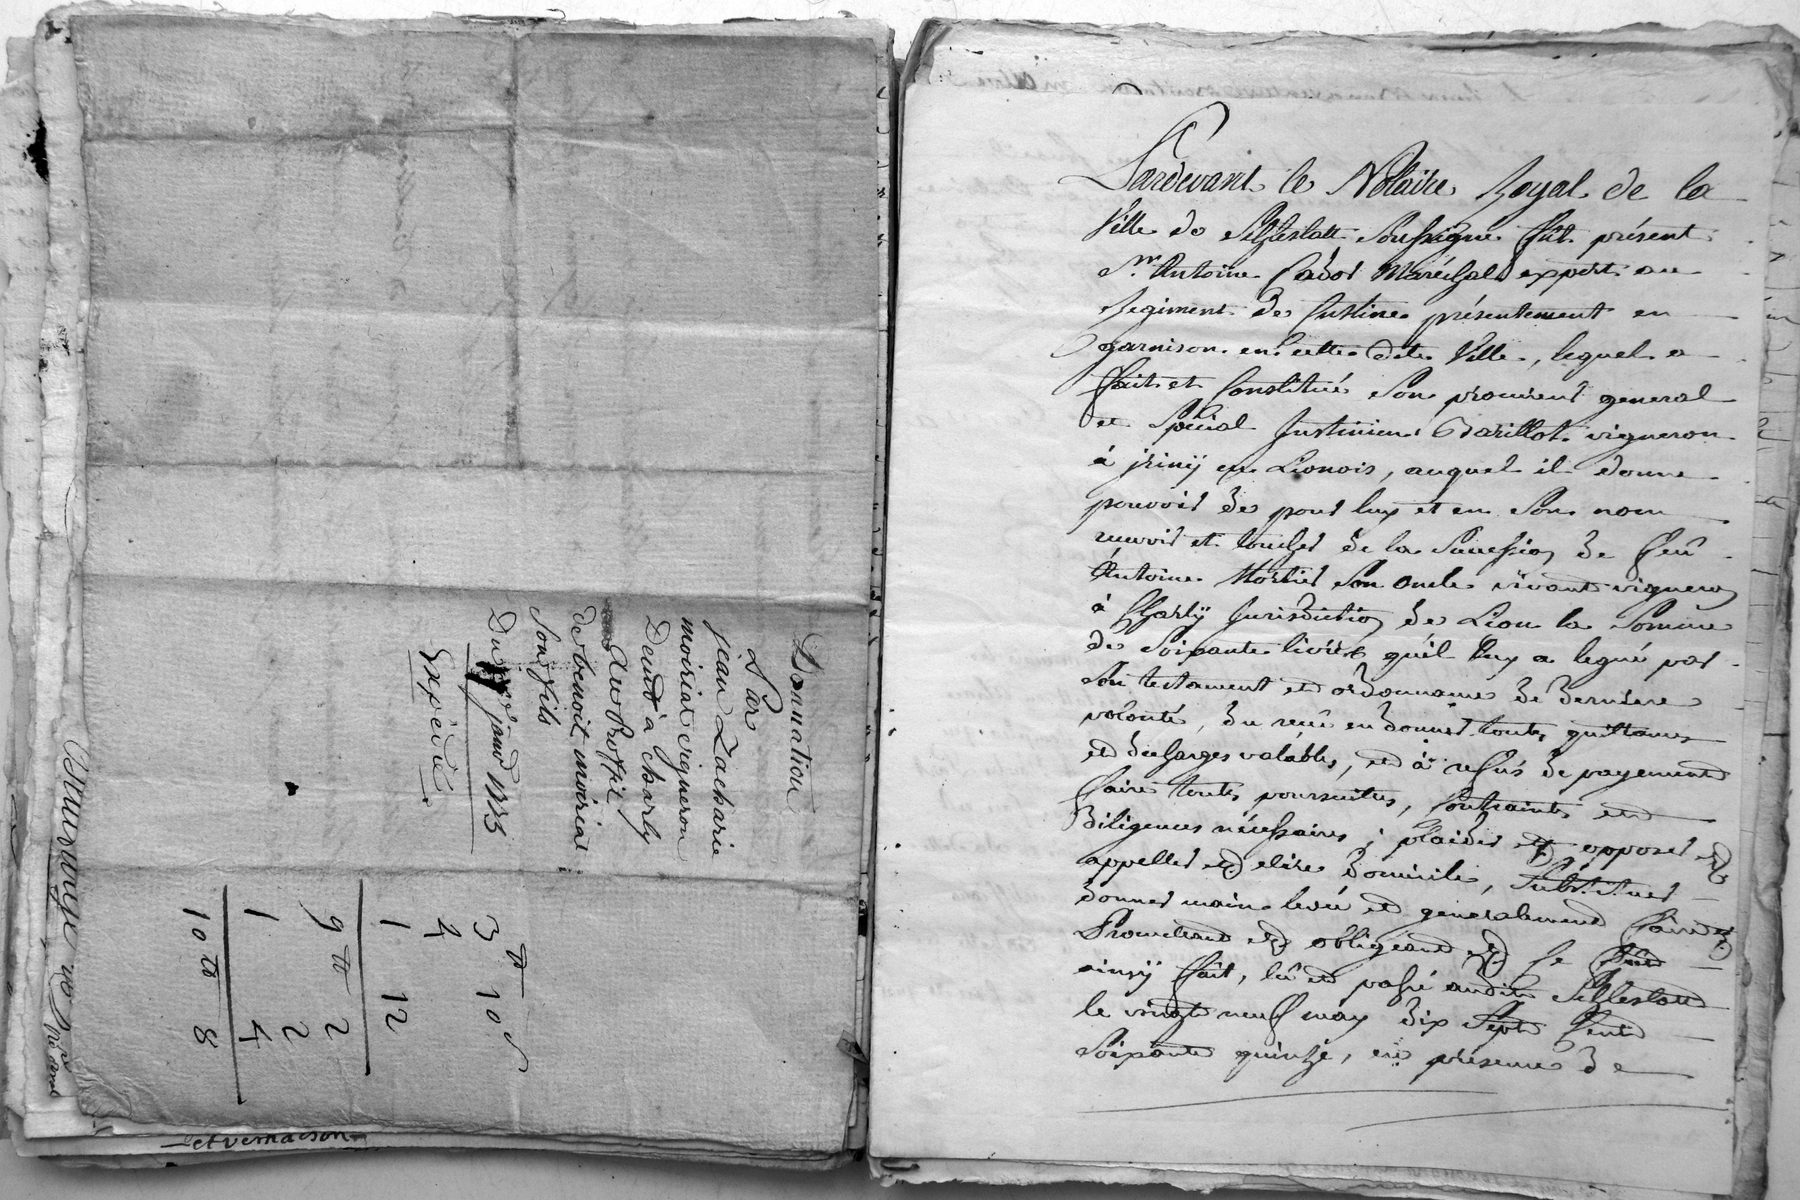 Donnation
Par
jean Zacharie
moiriat vigneron
Demt à charly
Au Proffit
de benoit moiriat
son fils
Du janv 1773
Expédié
3 tt 10 s
4
1 12
9 tt 2
2
1 4
10 tt 8
et vernaison
Pardevant le Notaire Royal de la
Ville de Schlestatt soussigné fut présent
Sr. Antoine Cadot Maréchal expert au
Regiment de Custine présentement en
garnison en cette dite Ville, lequel a
fait et constitué son procureur general
et spécial Justinien Barillot vigneron
à jriny en Lionois, auquel il donne
pouvoir de pour luy et en son nom
recevoir et toucher de la succession de feu
Antoine Mortier son oncle vivant vigneron
à Charly Jurisdiction de Lion la somme
de soixante livres qu'il luy a legué par
son testament et ordonnance de derniere
volonté, du reçu en donner toutes quittances
et decharges valables, et à refus de payement
faire toutes poursuites, contraintes et
diligences nécessaires; plaider et opposer et
appeller et elire domicile, substituer
donner main levée et generalement
Promettant et obligeant et Ce fut
ainsy fait, lû et passé audit Schlestatt
le vingt neuf may dix sept cent
soixante quinze, en présence de